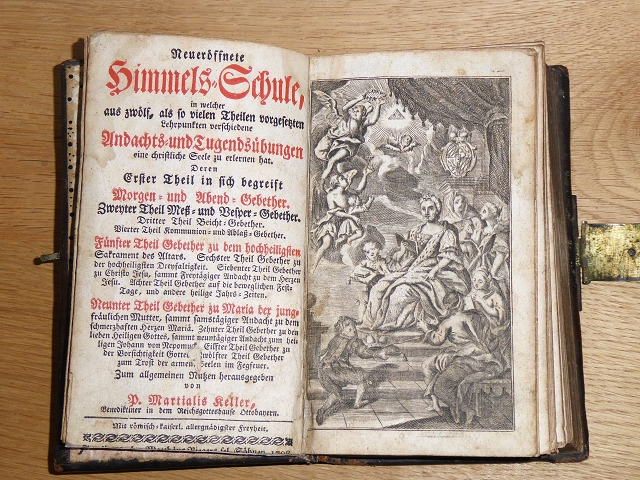 Neueröffnete
Himmels-Schule,
in welcher
aus zwölf, als so vielen Theilen vorgesetzten
Lehrpunkten verschiedene
Andachts- und Tugendsübungen
eine christliche Seele zu erlernen hat.
Deren
Erster Theil in sich begreift
Morgen- und Abend-Gebether.
Zweyter Theil Meß- und Vesper-Gebether.
Dritter Theil Beicht-Gebether.
Vierter Theil Kommunion- und Ablaß-Gebether.
Fünfter Theil Gebether zu dem hochheiligsten
Sakrament des Altars. Sechster Theil Gebether zu
der hochheiligsten Dreyfaltigkeit. Siebenter Theil Gebether
zu Christo Jesu, sammt Freytägiger Andacht zu dem Herzen
Jesu. Achter Theil Gebether auf die beweglichen Fest-
Tage, und andere heilige Jahrs-Zeiten.
Neunter Theil Gebether zu Maria der jung-
fräulichen Mutter, sammt samstägiger Andacht zu dem
schmerzhaften Herzen Mariä. Zehnter Theil Gebether zu den
lieben Heiligen Gottes, sammt neuntägiger Andacht zum hei-
ligen Johann von Nepomuk. Eilfter Theil Gebether zu
der Vorsichtigkeit Gottes. Zwölfter Theil Gebether
zum Trost der armen Seelen im Fegfeuer.
Zum allgemeinen Nutzen herausgegeben
von
P. Martialis Keller,
Benediktiner in dem Reichsgotteshause Ottobayern.
Mit römisch-kaiserl. allergnädigster Freyheit.